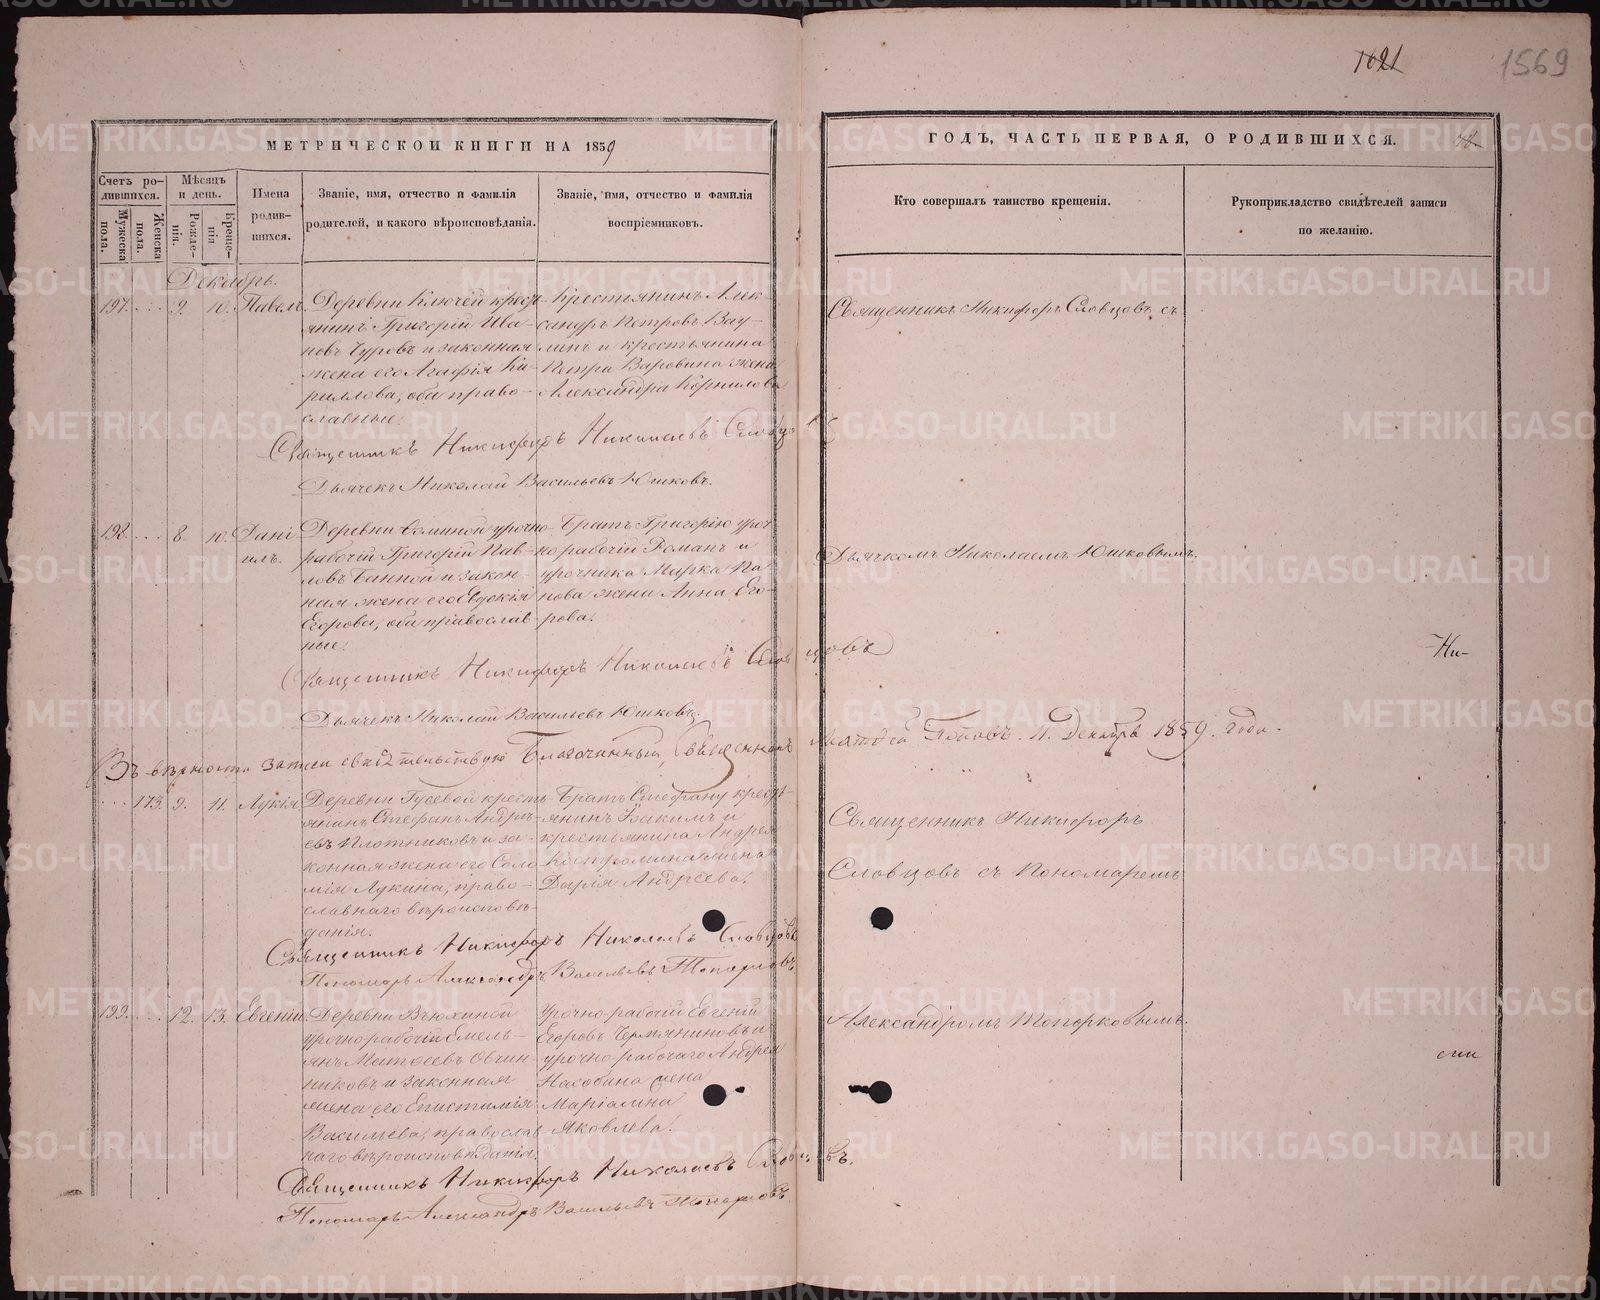 1621
1569
МЕТРИЧЕСКОЙ КНИГИ НА 1859
ГОДЪ, ЧАСТЬ ПЕРВАЯ, О РОДИВШИХСЯ.
Счетъ ро-
дившихся.
Мужеска пола.
Женска пола.
Мѣсяцъ
и день.
Рожде-
нія.
Креще-
нія
Имена
родив-
шихся.
Званіе, имя, отчество и фамилія
родителей, и какого вѣроисповѣданія.
Званіе, имя, отчество и фамилія
воспріемниковъ.
Кто совершалъ таинство крещенія.
Рукоприкладство свидѣтелей записи
по желанію.
Декабрь.
197. 9. 10. Павелъ
Деревни Ключей крест-
янинъ Григорій Ива-
новъ Чуровъ и законная
жена его Агафія Ки-
риллова, оба право-
славные.
Крестьянинъ Алек-
сандръ Петровъ Вау-
линъ и крестьянина
Петра Варовина жена
Александра Корнилова
Священникъ Никифоръ Словцовъ съ
Священникъ Никифоръ Николаевъ Словцовъ
Дьячекъ Николай Васильевъ Юшковъ.
198. 8. 10. Дані
илъ.
Деревни урочно-
рабочій Григорій Пав-
ловъ Банной и закон-
ная жена его Евдокія
Егорова, оба православ-
ные.
Братъ Григорію уроч-
норабочій Романъ и
урочника Марка Па
нова жена Анна Его-
рова.
Дьячкомъ Николаемъ Юшковымъ.
Священникъ Никифоръ Николаевъ Словцовъ
Ни-
Дьячекъ Николай Васильевъ Юшковъ.
Въ вѣрности записи свидѣтельствую Благочинный, Священникъ Матвей Поповъ. 11. Декабря 1859. года.
173. 9. 11. Лукія
Деревни Гусевой кресть-
янинъ Стефанъ Андре-
евъ Плотниковъ и за-
конная жена его Соло-
мія Лукина, право-
славнаго вѣроисповѣ-
данія.
Братъ Стефану крест-
янинъ Іоакимъ и
крестьянина Андрея
Костромина жена
Дарія Андреева.
Священникъ Никифоръ
Словцовъ съ Пономаремъ
Священникъ Никифоръ Николаевъ Словцовъ
Пономарь Александръ Васильевъ Топорковъ
199. 12. 13. Евгеній
Деревни Вьюхиной
урочнорабочій Емель-
янъ Матѳеевъ Овчин-
никовъ и законная
жена его Епистимія
Васильева, православ-
наго вѣроисповѣданія.
Урочнорабочій Евгеній
Егоровъ Чермяниновъ и
урочнорабочаго Андрея
Насобина жена
Маріамна
Яковлева.
Александромъ Топорковымъ.
Священникъ Никифоръ Николаевъ Словцовъ.
Пономарь Александръ Васильевъ Топорковъ
METRIKI.GASO-URAL.RU